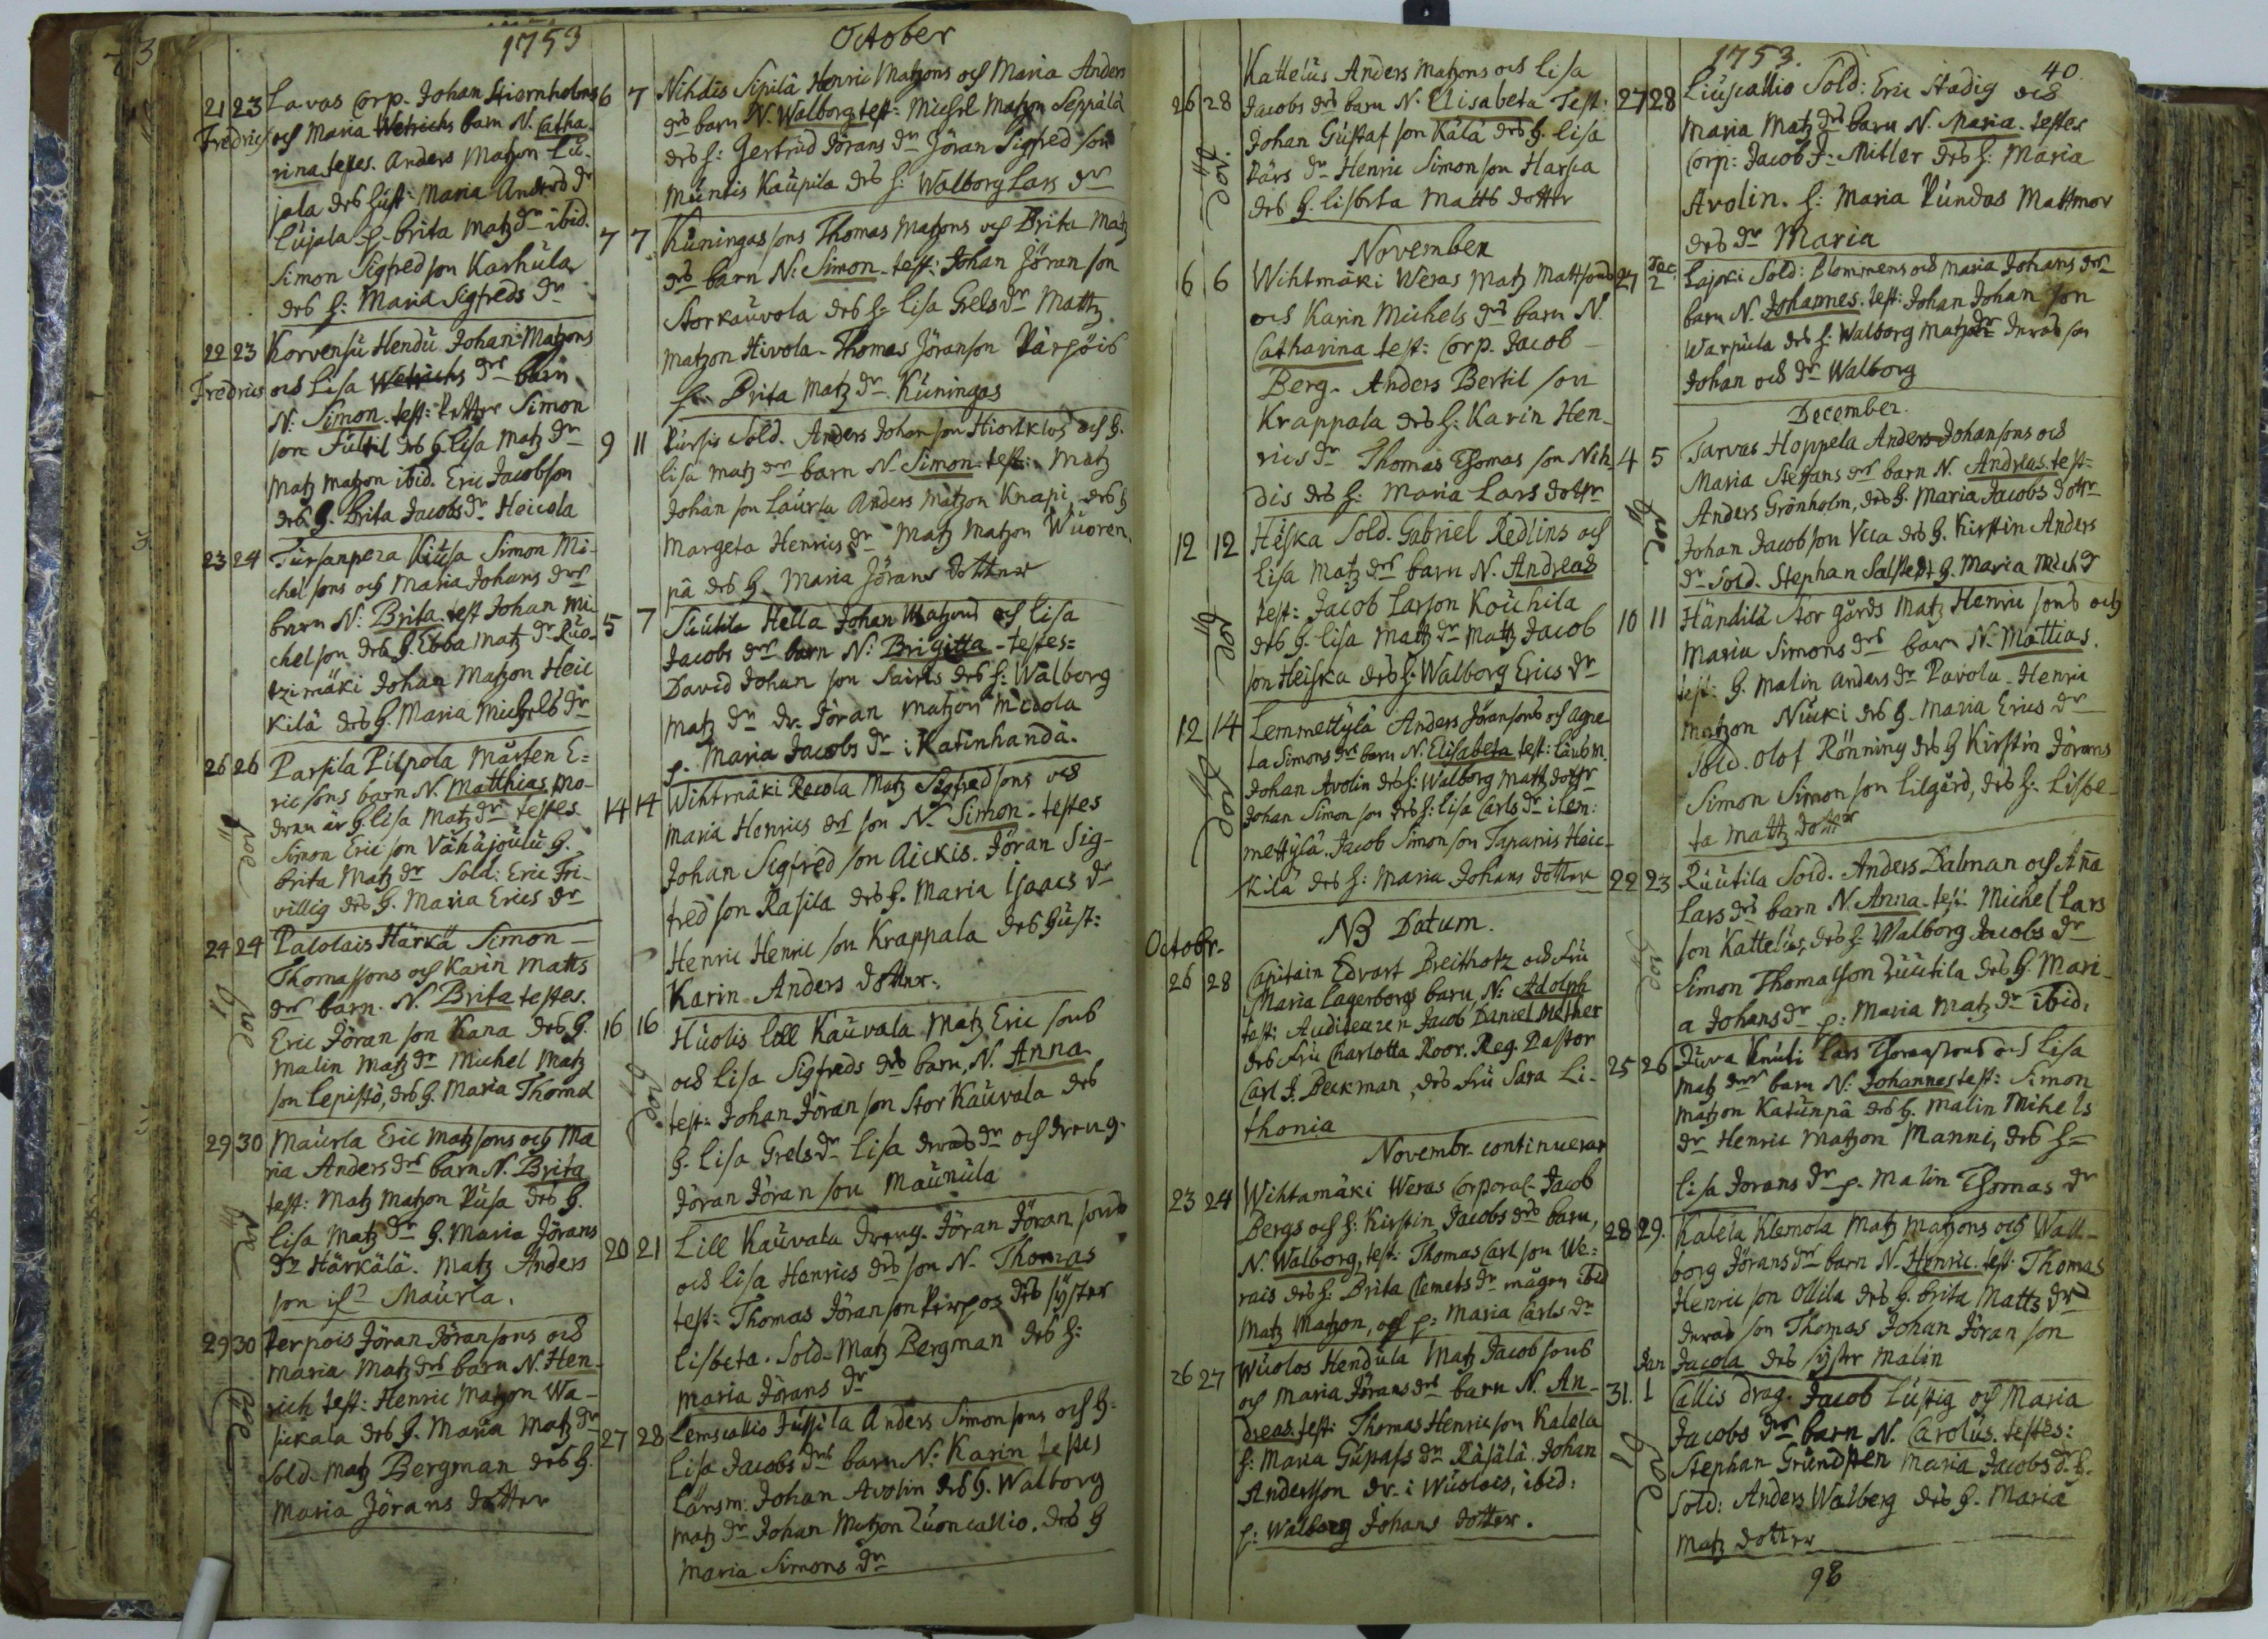 1753
21 23 Lavas Corp. Johan Stiernholms
Fredrics och Maria Wetrichs barn N. Catha-
rina testes. Anders Matzon Lu-
jala des hust: Maria Anders dr
Lujala p. Brita Matz dr ibid.
Simon Sigfred son Karhula
des h: Maria Sigfreds dr
22 23 Korvensu Hendu Johan Matzons
Fredrics och Lisa Wetrichs drs barn
N: Simon. test: Petter Simon
son Juttil des h Lisa Matz dr
Matz Matzon ibid. Eric Jacobson
des h. Brita Jacobs dr Heicola
23 24 Tursanpera Kiusa Simon Mi-
chel sons och Maria Johans drs
barn N: Brita. test Johan Mi
chelson des h. Ebba Matz dr Ruo-
tzimäki Johan Matzon Heic
kilä des h. Maria Michels dr
26 26 Parsila Pilpola Mårten E=
ric sons barn N. Matthias, mo-
dren är h. Lisa Matz dr testes.
Simon Eric son Vähäjoulu h.
Brita Matz dr Sold: Eric Fri-
villig des h. Maria Erics dr
24 24 Palolais Härkä Simon
Thomassons och Karin Matts
drs barn. N. Brita testes.
Eric Jöran son Kana des h.
Malin Matz dr Michel Matz
son Lepistö, des h. Maria Thomd
29 30 Maurla Eric Matzsons och Ma
ria Anders drs barn N. Brita
test: Matz Matzon Pusa des h.
Lisa Matz dr h. Maria Jörans
dr Härkälä. Matz Anders
son Maurla.
29 30 Perpois Jöran Jöransons och
Maria Matz drs barn N. Hen-
rich test: Henric Matzon Wa-
sickala des h. Maria Matz dr
Sold. Matz Bergman des h.
Maria Jörans dotter
October
6 7 Nihdis Sipilä Henric Matzons och Maria Anders
drs barn N. Walborg test: Michel Matzon Seppälä
des h: Gertrud Jörans dr Jöran Sigfred son
Muntis Kaupila des h: Walborg Lars dr
7 7 Kuningas sons Thomas Matzons och Brita Matz
drs barn N: Simon. test: Johan Jöran son
Storkauvola des h: Lisa Grels dr Mattz
Matzon Hivola. Thomas Jöranson Pärpöis
p. Brita Matz dr Kuningas
9 11 Pursis Sold. Anders Johanson Hiortklos och h.
Lisa Matz drs barn N. Simon. test: Matz
Johan son Laurla Anders Matzon Knapi, des h
Margeta Henrics dr Matz Matzon Wuoren
pä des h. Maria Jörans dotter
5 7 Suutila Hella Johan Matzons och Lisa
Jacobs drs barn N: Brigitta. testes=
David Johan son Sairts des h: Walborg
Matz dr dr. Jöran Matzon Micola
p. Maria Jacobs dr i Katinhanda.
14 14 Wihtmäki Recola Matz Sigfredsons och
Maria Henrics drs son N. Simon. testes
Johan Sigfred son Aickis. Jöran Sig-
fred son Rasila des h. Maria Isaacs dr
Henric Henric son Krappala des hust:
Karin Anders dotter.
16 16 Huolis Lill Kauvala Matz Eric sons
och Lisa Sigfreds drs barn, N. Anna
test: Johan Jöran son Stor Kauvala des
h. Lisa Grels dr Lisa deras dr och dreng.
Jöran Jöran son Maunula
20 21 Lill Kauvala dreng. Jöran Jöran sons
och Lisa Henrics drs son N. Thomas
test: Thomas Jöranson Perpos des syster
Lisbeta. Sold. Matz Bergman des h:
Maria Jörans dr
27 28 Lemscallio Jussila Anders Simonsons och h.
Lisa Jacobs drs barn N: Karin testes
Länsm: Johan Avolin des h. Walborg
Matz dr Johan Matzon Zuoncallio. des h
Maria Simons dr
Kattelus Anders Matzons och Lisa
26 28 Jacobs drs barn N. Elisabeta Test:
Johan Gustaf son Källä des h. Lisa
Pärs dr Henric Simonson Harsia
des h. Lisbeta Matts dotter
November
6 6 Wihtmäki Weras Matz Mattsons
och Karin Michels drs barn N.
Catharina test: Corp. Jacob
Berg. Anders Bertil son
Krappala des h: Karin Hen-
rics dr Thomas Thomas son Nih
dis des h: Maria Lars dottr
12 12 Heiska Sold. Gabriel Redlins och
Lisa Matz drs barn N. Andreas
test: Jacob Larson Kouhila
des h. Lisa Mattz dr Mattz Jacob
son Heiska des h: Walborg Erics dr
12 14 Lemmettylä Anders Jöransons och Agne
ta Simons drs barn N. Elisabeta test: länsm.
Johan Avolin des h: Walborg Mattz dottr
Johan Simon son des h: Lisa Carls dr i Lem:
mettylä. Jacob Simonson Tapanis Heic-
kilä des h: Maria Johans dotter
NB Datum.
Octobr.
26 28 Capitain Edvart Breitholz och fru
Maria Lagerborgs barn, N: Adolph
test: Auditeuren Jacob Daniel Mether
des fru Charlotta Roor. Reg. Pastor
Carl J. Beckman, des fru Sara Li-
thonia
Novembr. continueras
23 24 Wihtamäki Weras Corporal Jacob
Bergs och h: Kirstin Jacobs drs barn,
N. Walborg, test: Thomas Carl son We=
rais des h: Brita Clemets dr mågen ibid
Matz Matzon, och p: Maria Carls dr
26 27 Wuolos Hendula Matz Jacob sons
och Maria Jörans drs barn N. An-
dreas. test: Thomas Henricson Kalela
h: Maria Gustafs dr Räsälä. Johan
Andersson dr. i Wuolois, ibid:
p: Walborg Johans dotter.
1753. 40.
27 28 Liuscallio Sold: Eric Stadig och
Maria Matz drs barn N. Maria. testes
Corp: Jacob J: Mitler des h: Maria
Avolin. h: Maria Pundas Mattmor
des dr Maria
27 Dec. 2 Lajoki Sold: Blommens och Maria Johans drs
barn N. Johannes. test: Johan Johan son
Warpula des h: Walborg Matz dr deras son
Johan och dr Walborg
December.
4 5 Tarvas Hoppela Anders Johansons och
Maria Steffans drs barn N. Andreas. test=
Anders Grönholm, des h. Maria Jacobs dottr
Johan Jacobson Ucca des h. Kirstin Anders
dr Sold. Stephan Salstedt h. Maria Mich dr
10 11 Händilä Stor gårds Matz Henric sons och
Maria Simons drs barn N. Mattias.
test: h. Malin Anders dr Pavola. Henric
Matzon Nucki des h. Maria Erics dr
Sold. Olof Rönning des h Kirstin Jörans
Simon Simon son Lilgård, des h. Lisbe-
ta Mattz dotter
22 23 Ruutila Sold. Anders Dalman och Anna
Lars drs barn N. Anna. test: Michel Lars
son Kattelus, des h: Walborg Jacobs dr
Simon Thomasson Zuutila des h. Mari-
a Johans dr p: Maria Matz dr ibid.
25 26 Juva Knuti Lars Thomassons och Lisa
Matz drs barn N: Johannes test: Simon
Matzon Katunpä des h. Malin Mihels
dr Henric Matzon Manni, des h=
Lisa Jorans dr p. Malin Thomas dr
28 29. Kalela Klemola Matz Matzons och Wall-
borg Jörans drs barn N. Henric. test: Thomas
Henric son Ollila des h. Brita Matts dr
deras son Thomas Johan Jöran son
Jacola des syster Malin
31. Jan 1 Callis drag. Jacob Lustig och Maria
Jacobs drs barn N. Carolus. testes:
Stephan Grundsten Maria Jacobs dr h.
Sold: Anders Walberg des h. Maria
Matz dotter
98